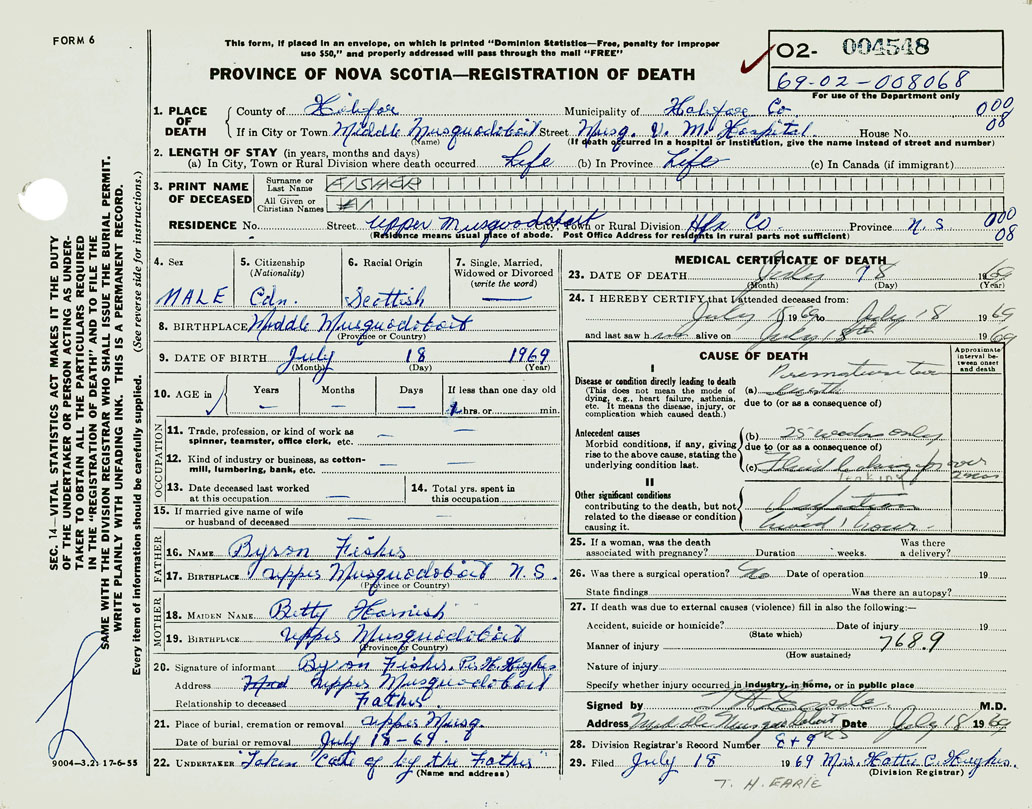 FORM 6
This form, if placed in an envelope, on which is printed "Dominion Statistics—Free, penalty for improper
use $50," and properly addressed will pass through the mail "FREE"
PROVINCE OF NOVA SCOTIA—REGISTRATION OF DEATH
02- 004548
69-02-008068
For use of the Department only
SEC. 14—VITAL STATISTICS ACT MAKES IT THE DUTY
OF THE UNDERTAKER OR PERSON ACTING AS UNDER-
TAKER TO OBTAIN ALL THE PARTICULARS REQUIRED
IN THE "REGISTRATION OF DEATH" AND TO FILE THE
SAME WITH THE DIVISION REGISTRAR WHO SHALL ISSUE THE BURIAL PERMIT.
WRITE PLAINLY WITH UNFADING INK. THIS IS A PERMANENT RECORD.
Every item of information should be carefully supplied. (See reverse side for instructions.)
1. PLACE OF DEATH County of Halifax Municipality of Halifax Co 000
If in City or Town Middle Musquodoboit Street Musq. V. M. Hospital. House No. 08
(Name) (If death occurred in a hospital or institution, give the name instead of street and number)
2. LENGTH OF STAY (in years, months and days)
(a) In City, Town or Rural Division where death occurred Life (b) In Province Life (c) In Canada (if immigrant)
3. PRINT NAME OF DECEASED Surname or Last Name FISHER
All Given or Christian Names #1
RESIDENCE No. Street Upper Musquodoboit City, Town or Rural Division Hfx Co. Province N.S 000 08
(Residence means usual place of abode. Post Office Address for residents in rural parts not sufficient)
4. Sex
MALE
5. Citizenship
(Nationality)
Cdn.
6. Racial Origin
Scottish
7. Single, Married,
Widowed or Divorced
(write the word)
8. BIRTHPLACE Middle Musquodoboit
(Province or Country)
9. DATE OF BIRTH July 18 1969
(Month) (Day) (Year)
10. AGE in Years Months Days If less than one day old
1 hrs. or min.
OCCUPATION
11. Trade, profession, or kind of work as
spinner, teamster, office clerk, etc.
12. Kind of industry or business, as cotton-
mill, lumbering, bank, etc.
13. Date deceased last worked
at this occupation
14. Total yrs. spent in
this occupation
15. If married give name of wife
or husband of deceased
FATHER
16. NAME Byron Fisher
17. BIRTHPLACE Upper Musquodoboit N.S.
(Province or Country)
MOTHER
18. MAIDEN NAME Betty Harnish
19. BIRTHPLACE Upper Musquodoboit
(Province or Country)
20. Signature of informant Byron Fisher. Per H. Hughes
Address Upper Musquodoboit
Relationship to deceased Father.
21. Place of burial, cremation or removal Upper Musq.
Date of burial or removal July 18-69.
22. UNDERTAKER "Taken Care of by the Father
(Name and address)
9004—3.2) 17-6-55
MEDICAL CERTIFICATE OF DEATH
23. DATE OF DEATH July 18 1969
(Month) (Day) (Year)
24. I HEREBY CERTIFY that I attended deceased from:
July 18 1969 to July 18 1969
and last saw him alive on July 18th 1969
CAUSE OF DEATH
Approximate
interval be-
tween onset
and death
I
Disease or condition directly leading to death
(This does not mean the mode of
dying, e.g., heart failure, asthenia,
etc. It means the disease, injury, or
complication which caused death.)
(a) Premature
due to (or as a consequence of)
Antecedent causes
Morbid conditions, if any, giving
rise to the above cause, stating the
underlying condition last.
(b) 25 weeks only
due to (or as a consequence of)
(c) Fluid leaking for over
leaking
II
Other significant conditions
contributing to the death, but not
related to the disease or condition
causing it.
lived 1 hour.
25. If a woman, was the death
associated with pregnancy? Duration weeks. Was there
a delivery?
26. Was there a surgical operation? No Date of operation 19
State findings Was there an autopsy?
27. If death was due to external causes (violence) fill in also the following:—
Accident, suicide or homicide? Date of injury 19
(State which)
Manner of injury 7689
(How sustained)
Nature of injury
Specify whether injury occurred in industry, in home, or in public place
Signed by M.D.
Address Middle Musquodoboit NS Date July 18 1969
28. Division Registrar's Record Number 8+9
29. Filed July 18 1969 Mrs. Hattie C. Hughes.
(Division Registrar)
T. H. EARLE